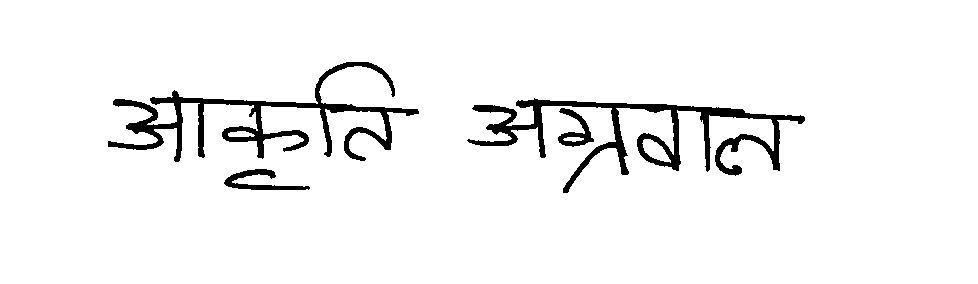 आकृति अग्रवाल